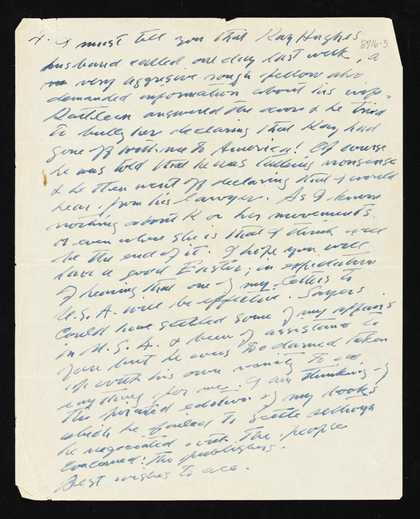 4. I must tell you that Kay Hughes
husband called one day last week, a
very aggresive rough fellow who
demanded information about his wife.
Kathleen answered the door & he tried
to bully her declaring that Kay had
gone off with me to America! Of course
he was told that he was talking nonsense
& he then went off declaring that I would
hear from his lawyer. As I know
nothing about K or her movements
or even where she is that I think will
be the end of it. I hope you will
have a good Easter; in expectation
of hearing that one of my letters to
U.S.A. will be effective. Sayers
could have settled some of my affairs
in U.S.A. & been of assistance to
you but he was too darned taken
up with his own vanity to do
anything for me. I am thinking of
the pirated edition of my books
which he failed to settle although
he negotiated with the people
concerned: the publishers.
Best wishes to all.
8916-3